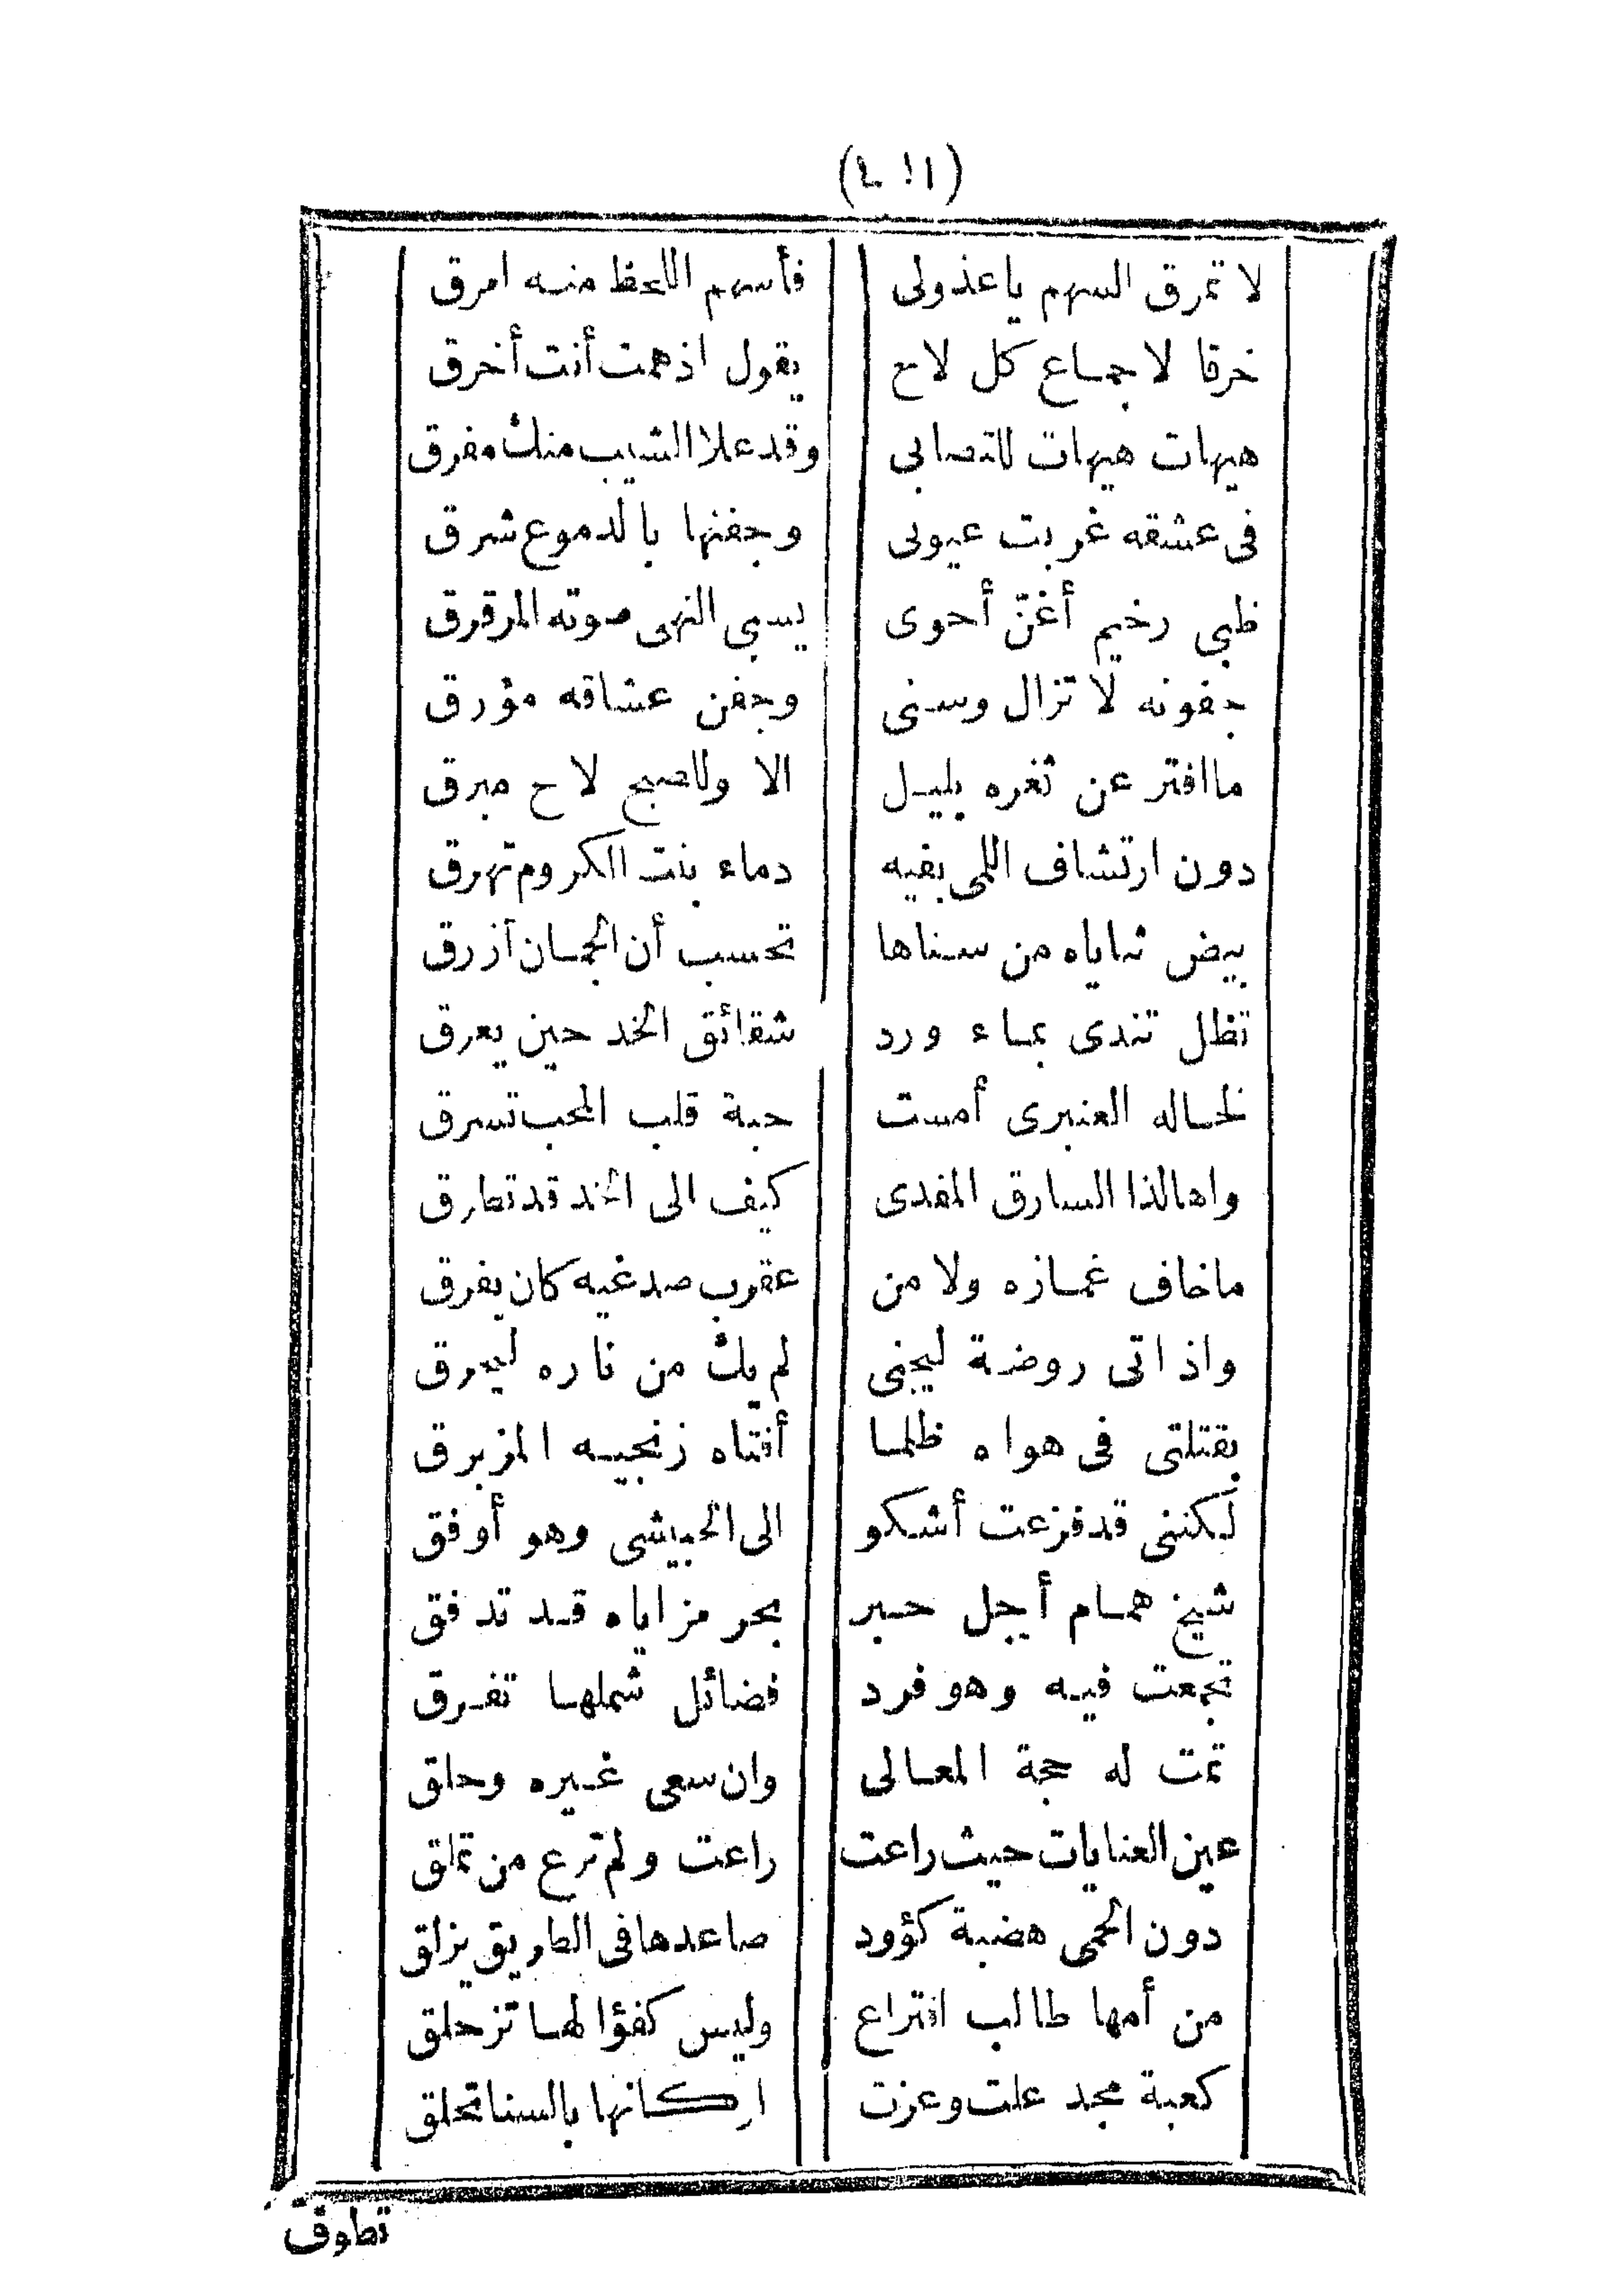 لا تمرق السهم يا عذولى فأسهم اللحظ منه امرق
خرقا لاجماع كل لاح يقول اذ همت أنت أخرق
هيهات هيهات للتصابى وقد علا الشيب منك مفرق
فى عشقه غربت عيونى وجفنها بالدموع شرق
ظبى رخيم أغنّ أحوى يسبى النهى صوته المرقرق
جفونه لا تزال وسنى وجفن عشاقه مؤرق
ما افتر عن ثغره بليل الا وللصبح لاح مبرق
دون ارتشاف اللمى بفيه دماء بنت الكروم تهرق
بيض ثناياه من سناها تحسب أن الجمان أزرق
تظل تندى بماء ورد شقائق الخد حين يعرق
لخاله العنبرى أمست حبة قلب المحب تسرق
واها لذا السارق المفدى كيف الى الخد قد تطرق
ما خاف غمازه ولا من عقرب صدغيه كان يفرق
واذ اتى روضة ليجنى لم يك من ناره ليحرق
بقتلتى فى هواه ظلما أفتاه زنجيه المزبرق
لكننى قد فزعت أشكو الى الحبيشى وهو أوفق
شيخ همام أجل حبر بحر مزاياه قد تدفق
تجمعت فيه وهو فرد فضائل شملها تفرق
تمت له حجة المعالى وان سعى غيره وحلق
عين العنايات حيث راعت راعت ولم ترع من تملق
دون الحمى هضبة كؤود صاعدها فى الطريق يزلق
من أمها طالب افتراع وليس كفؤا لها تزحلق
كعبة مجد علت وعزت اركانها بالسنا تحلق
تطوف